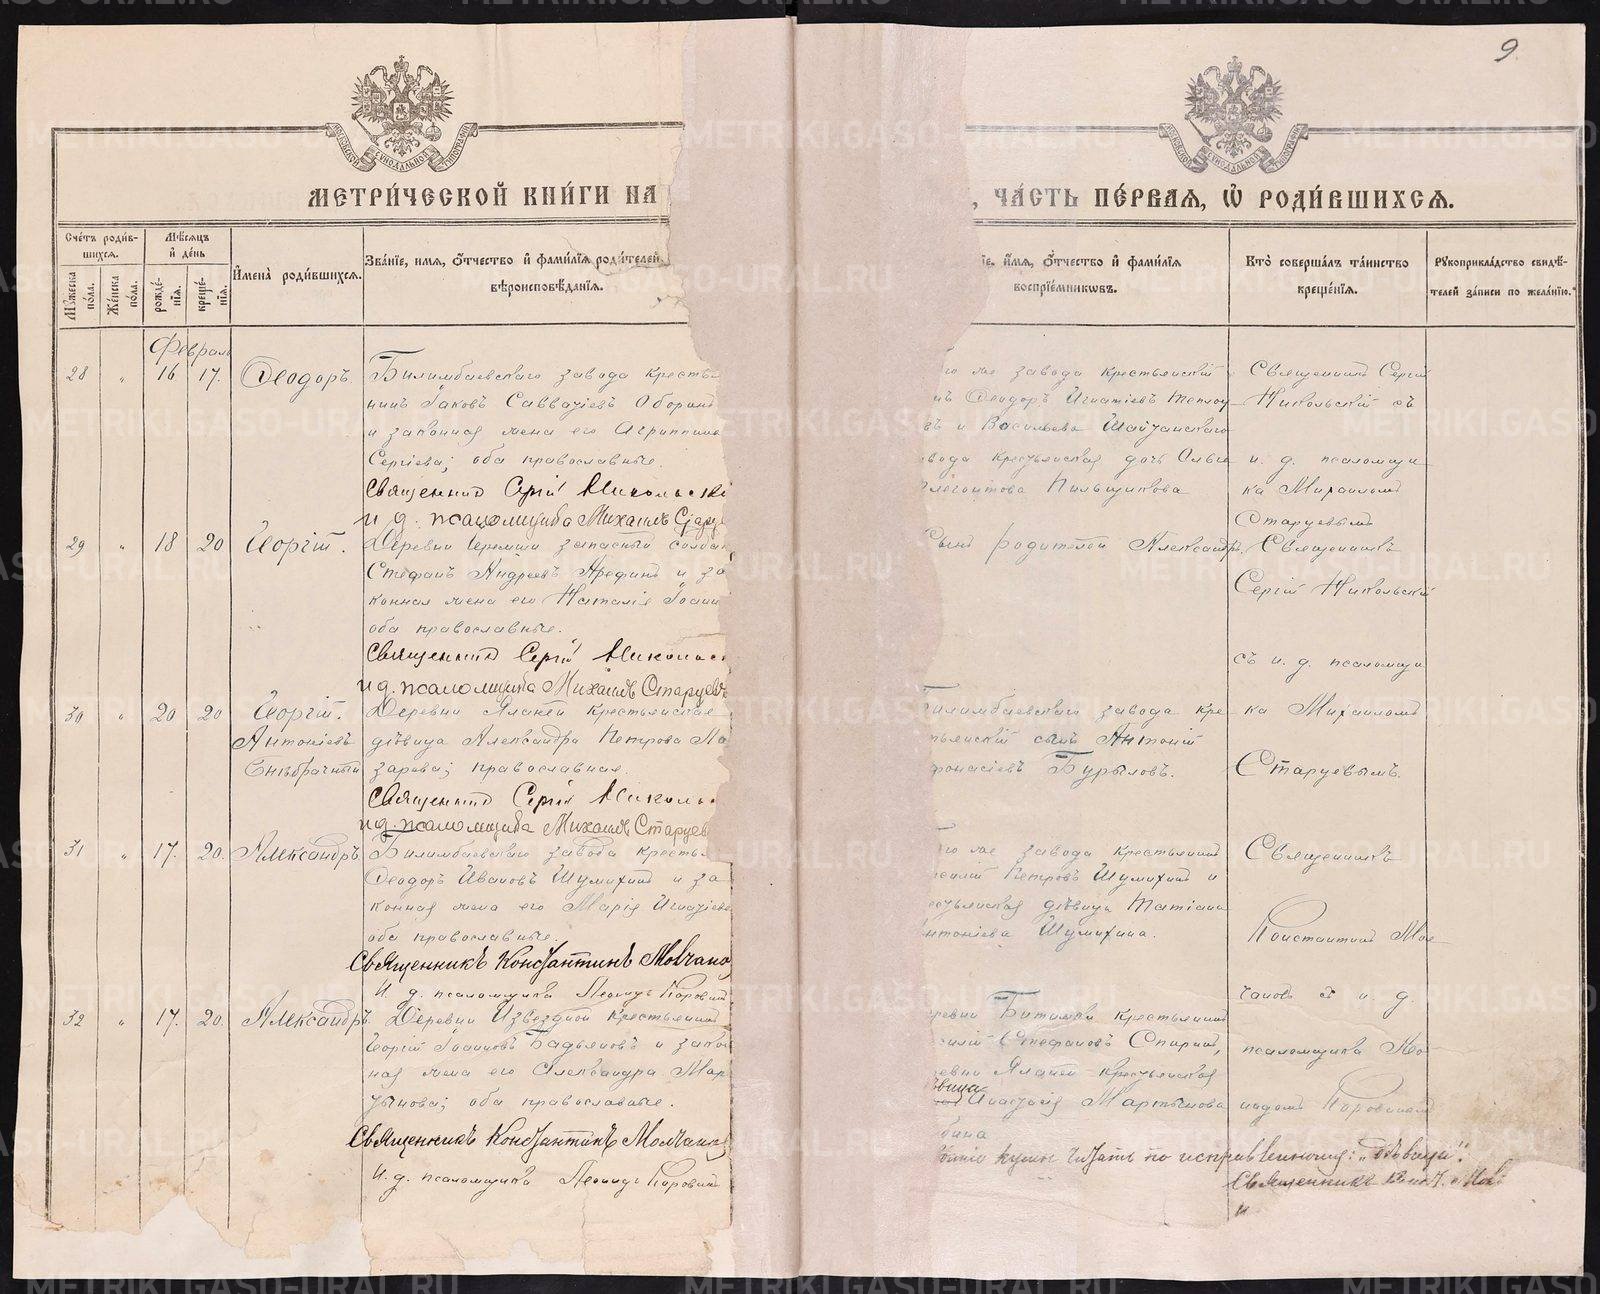 9.
МОСКОВСКОЙ СѴНОДАЛЬНОЙ ТИПОГРАФІИ
МОСКОВСКОЙ СѴНОДАЛЬНОЙ ТИПОГРАФІИ
МЕТРИ́ЧЕСКОЙ КНИ́ГИ НА
, ЧА́СТЬ ПЕ́РВАЯ, Ѽ РОДИ́ВШИХСЯ.
Сче́тъ роди́в-
шихся.
Мѣ́сяцъ
и҆ де́нь
Мꙋ́жеска по́ла.
Же́нска по́ла.
рожде́-
нїя.
креще́-
нїя.
И҆мена̀ роди́вшихся.
Зва́нїе, имя, о҆́тчество и҆ фами́лїя роди́телей
вѣроисповѣ́данїя.
їе, и҆́мя, о҆́тчество и҆ фами́лїя
воспрїе́мникѡвъ.
Кто̀ соверша́лъ та́инство
креще́нїя.
Рꙋкоприкла́дство свидѣ́-
телей за́писи по жела́нїю.
Февраль
28 " 16 17. Ѳеодоръ.
Билимбаевскаго завода кресть-
нинъ Іаковъ Савватіевъ Оборинъ
и законная жена его Агриппина
Сергіева; оба православные.
Священникъ Сергій Никольскі
И. д. псаломщика Михаилъ Старце
го же завода крестьянскій
нъ Ѳеодоръ Игнатіевъ Теплоу-
въ и Васильево Шайтанскаго
вода крестьянская дочь Ольга
легонтова Пильщикова
Священникъ Сергій
Никольскій съ
и. д. псаломщи
ка Михаиломъ
Старцевымъ
29 " 18 20 Георгій.
Деревни Черемши запасный солдат
Стефанъ Андреевъ Арефинъ и за
конная жена его Наталія Іоанн
оба православные.
Священникъ Сергій Никольск
И д. псаломщика Михаилъ Старцевъ
Сынъ родителей Александръ.
Священникъ
Сергій Никольскій
съ и. д. псаломщи
30 " 20 20 Георгій.
Антоніевъ
Внѣбрачный
Деревни Яланки крестьянская
дѣвица Александра Петрова Ма
зарова; православная.
Священникъ Сергій Николь
И д. псаломщика Михаилъ Старцев
Билимбаевскаго завода кре
тьянскій сынъ Антоній
фонасіевъ Бурыловъ.
ка Михаиломъ
Старцевымъ.
31 " 17. 20. Александръ.
Билимбаевскаго завода кресть-
Ѳеодоръ Ивановъ Шумихинъ и за
конная жена его Марія Игнатіева
оба православные.
Священникъ Константинъ Молчано
И. д. псаломщика Леонидъ Коровин
го же завода крестьянинъ
силій Петровъ Шумихинъ и
естьянская дѣвица Татіана
нтоніева Шумихина.
Священникъ
Константинъ Мол-
32 " 17. 20. Александръ.
Деревни Извездной крестьянинъ
Георгій Іоанновъ Бадьяновъ и закон
ная жена его Александра Мар
тынова; оба православные.
Священникъ Константинъ Молчано
И. д. псаломщика Леонидъ Коровин
ревни Битимки крестьянинъ
силій Стефановъ Спиринъ,
евни Яланки крестьянская
вица
Анастасія Мартынова
бина
чановъ съ и. д.
псаломщика Лео-
нидомъ Коровинымъ
купы читать по исправленному: "дѣвица".
Священникъ Конст. Мол
И
METRIKI.GASO-URAL.RU